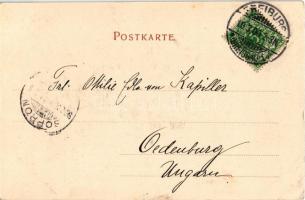 POSTKARTE
FREIBURG
Frl. Ottilie Edle von Kapiller
SOPRON
Oedenburg
Ungarn